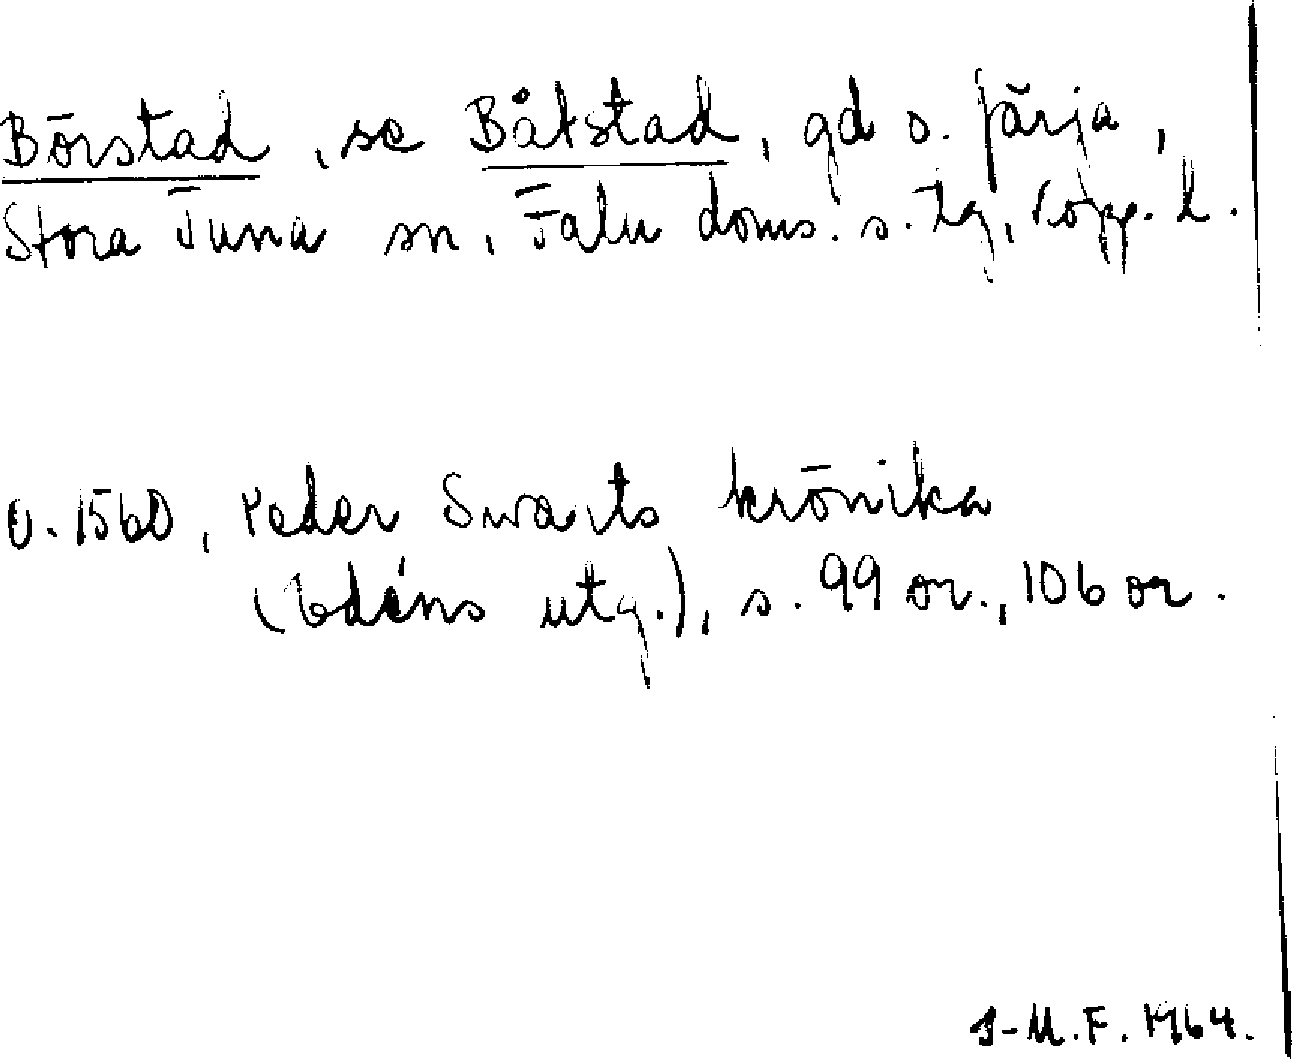 Börstad, se Båtstad, gd o. färja,
Stora Tuna sn, Falu doms. s. tg, Kopp. l.
o. 1560, Peder Swarts krönika
(Edéns utg.), s. 99 or., 106 or.
I-M.F. 1964.